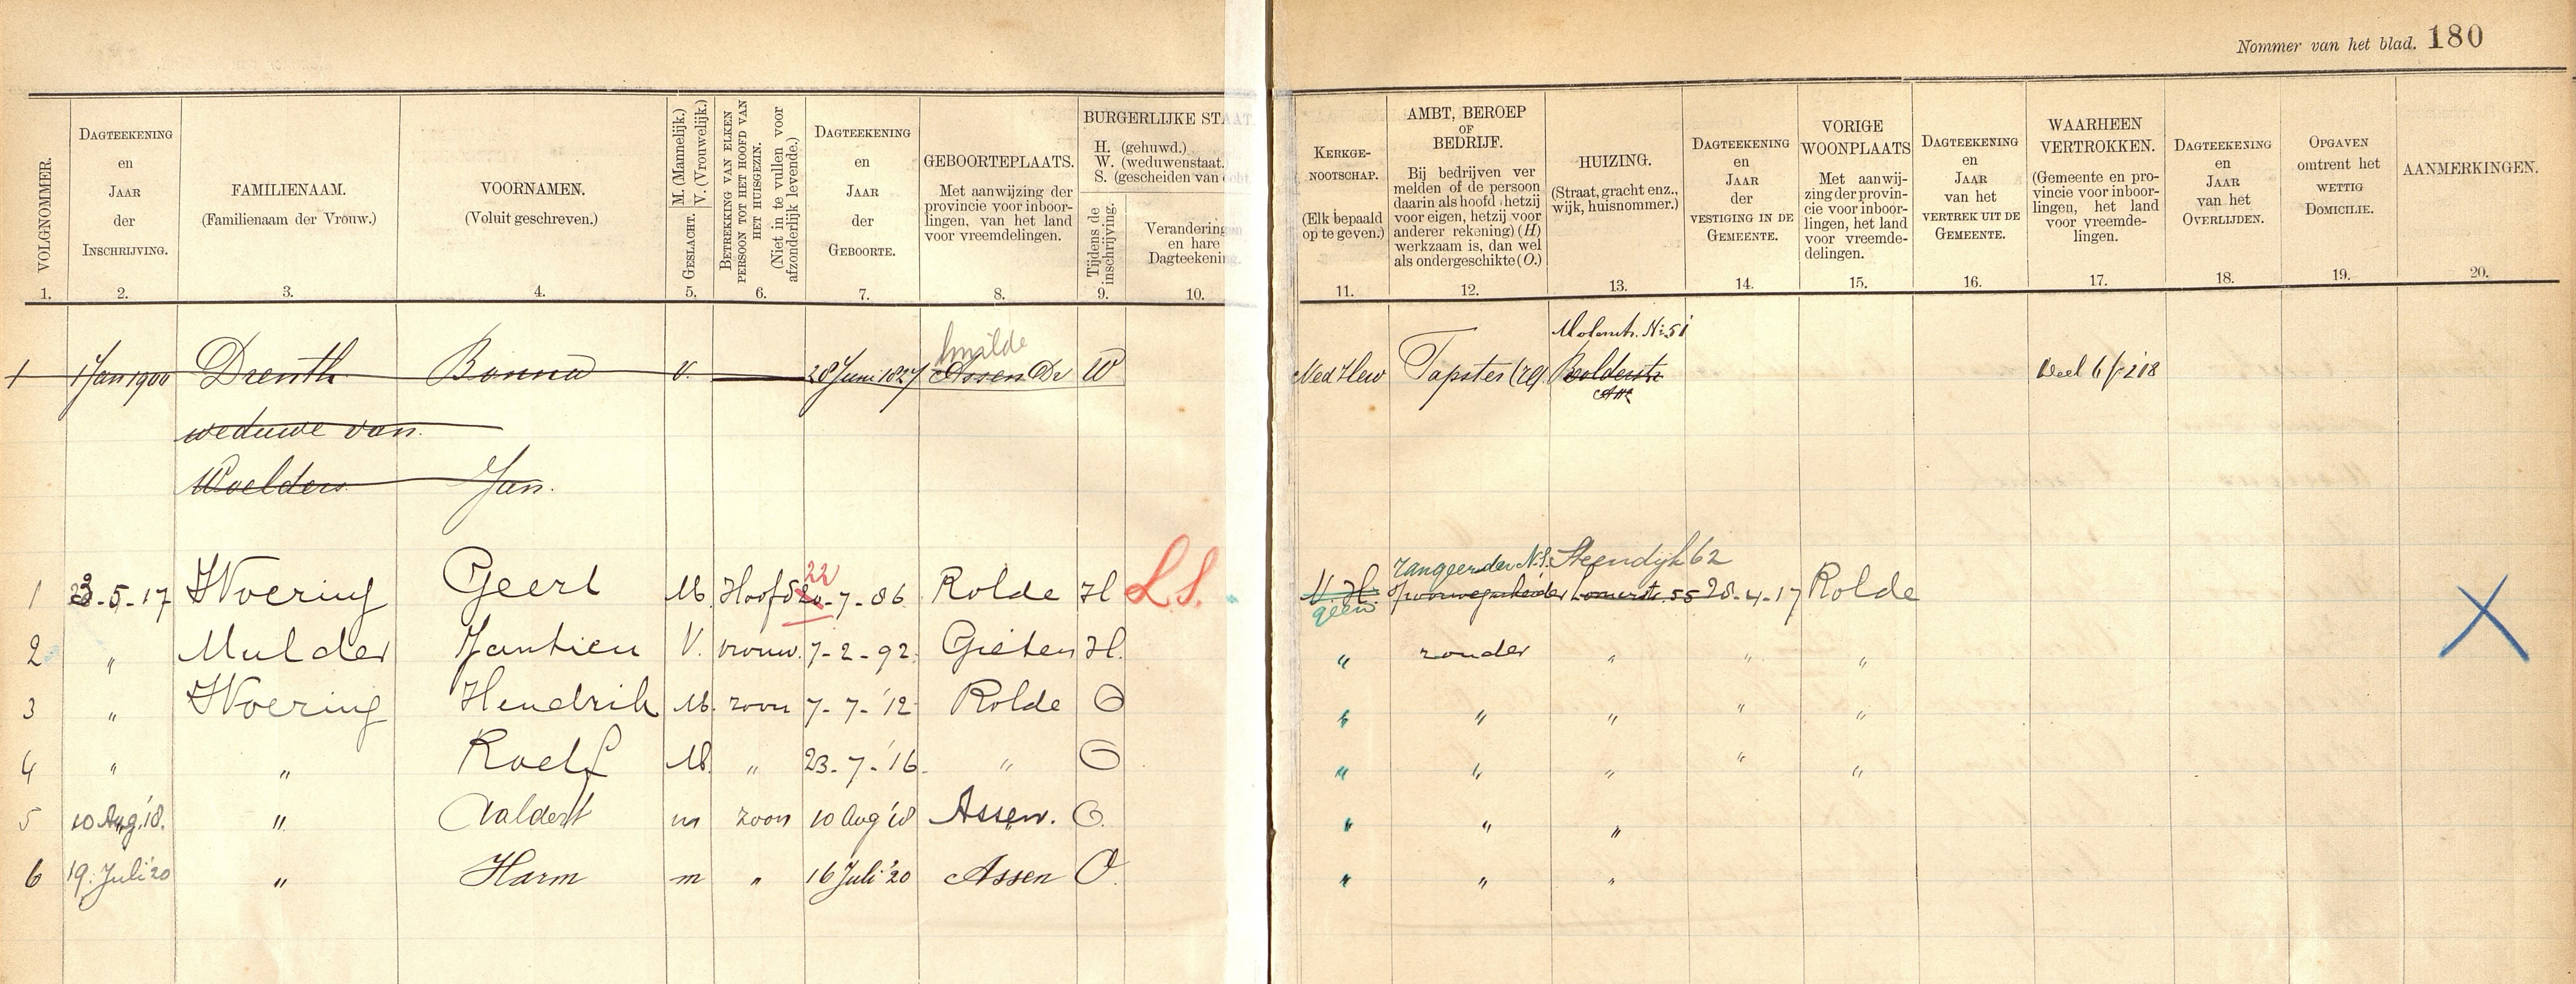 Nommer van het blad. 180
VOLGNOMMER.
1.
DAGTEEKENING
en
JAAR
der
INSCHRIJVING.
2.
FAMILIENAAM.
(Familienaam der Vrouw.)
3.
VOORNAMEN.
(Voluit geschreven.)
4.
GESLACHT. M. (Mannelijk.)
V. (Vrouwelijk.)
5.
BETREKKING VAN ELKEN
PERSOON TOT HET HOOFD VAN
HET HUISGEZIN.
(Niet in te vullen voor
afzonderlijk levende.)
6.
DAGTEEKENING
en
JAAR
der
GEBOORTE.
7.
GEBOORTEPLAATS.
Met aanwijzing der
provincie voor inboor-
lingen, van het land
voor vreemdelingen.
8.
BURGERLIJKE STAAT
H. (gehuwd.)
W. (weduwenstaat.
S. (gescheiden van
Tijdens de
inschrijving.
9.
Verandering
en hare
Dagteekening.
10.
KERKGE-
NOOTSCHAP.
(Elk bepaald
op te geven.)
11.
AMBT, BEROEP
OF
BEDRIJF.
Bij bedrijven ver
melden of de persoon
daarin als hoofd (hetzij
voor eigen, hetzij voor
anderer rekening) (H)
werkzaam is, dan wel
als ondergeschikte (O.)
12.
HUIZING.
(Straat, gracht enz.,
wijk, huisnommer.)
13.
DAGTEEKENING
en
JAAR
der
VESTIGING IN DE
GEMEENTE.
14.
VORIGE
WOONPLAATS
Met aanwij-
zing der provin-
cie voor inboor-
lingen, het land
voor vreemde-
delingen.
15.
DAGTEEKENING
en
JAAR
van het
VERTREK UIT DE
GEMEENTE.
16.
WAARHEEN
VERTROKKEN.
(Gemeente en pro-
vincie voor inboor-
lingen, het land
voor vreemde-
lingen.
17.
DAGTEEKENING
en
JAAR
van het
OVERLIJDEN.
18.
OPGAVEN
omtrent het
WETTIG
DOMICILIE.
19.
AANMERKINGEN.
20.
Smilde Molenstr. No 51
1 1 Jan 1900 Drenth Bonna V. 28 Juni 1827 Assen Dr W Ned Herv Tapster Rolderstr Deel 6 f 218
weduwe van
Woelders Jan.
22 Rangeerder N.S. Steendijk 62
1 23-5-17 Woering Geert M. Hoofd 20-7-86 Rolde H L.S. N.H. Spoorwegarbeider Lonerstr. 55 28-4-17 Rolde
geen
2 " Mulder Jantien V. vrouw. 7-2-92. Gieten H. " zonder " " "
3 " Woering Hendrik M. zoon 7-7-'12 Rolde O " " " " "
4 " " Roelf M. " 23-7-'16. " O " " " " "
5 10 Aug '18. " Aaldert m zoon 10 Aug '18 Assen. O. " " "
6 19 Juli '20 " Harm m " 16 Juli '20 Assen O. " " "